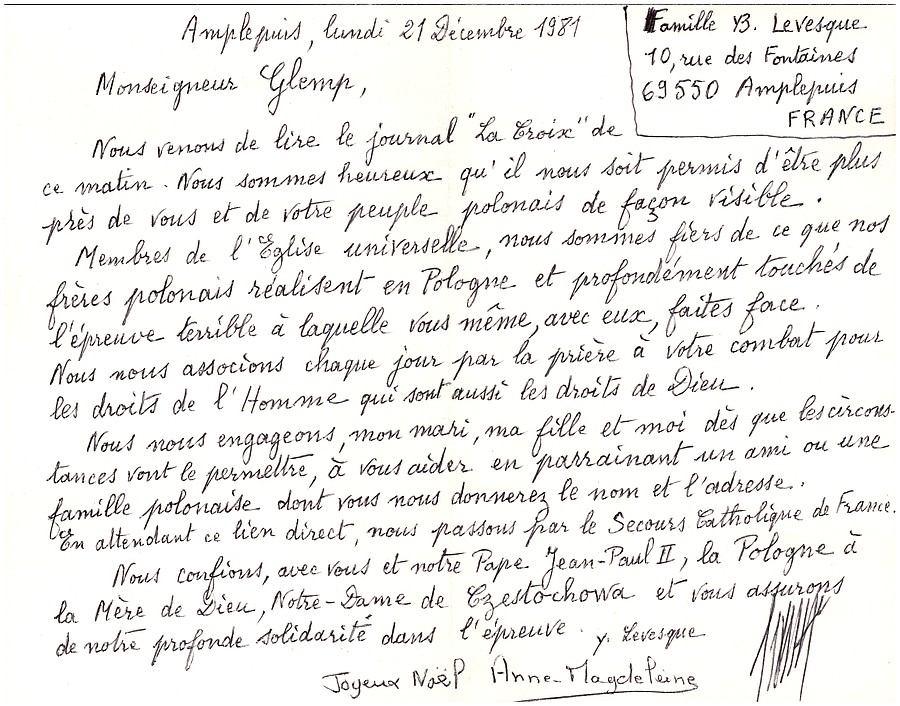 Amplepuis, lundi 21 Décembre 1981
Famille B. Levesque
10, rue des Fontaines
69550 Amplepuis
FRANCE
Monseigneur Glemp,
Nous venons de lire le journal "La Croix" de
ce matin. Nous sommes heureux qu'il nous soit permis d'être plus
près de vous et de votre peuple polonais de façon visible.
Membres de l'Eglise universelle, nous sommes fiers de ce que nos
frères polonais réalisent en Pologne et profondément touchés de
l'épreuve terrible à laquelle vous même, avec eux, faites face.
Nous nous associons chaque jour par la prière à votre combat pour
les droits de l'Homme qui sont aussi les droits de Dieu.
Nous nous engageons, mon mari, ma fille et moi dès que les circons-
tances vont le permettre, à vous aider en parrainant un ami ou une
famille polonaise dont vous nous donnerez le nom et l'adresse.
En attendant ce lien direct, nous passons par le Secours Catholique de France.
Nous confions, avec vous et notre Pape Jean-Paul II, la Pologne à
la Mère de Dieu, Notre-Dame de Czestochowa et vous assurons
de notre profonde solidarité dans l'épreuve. y. Levesque
Joyeux Noël Anne-Magdeleine